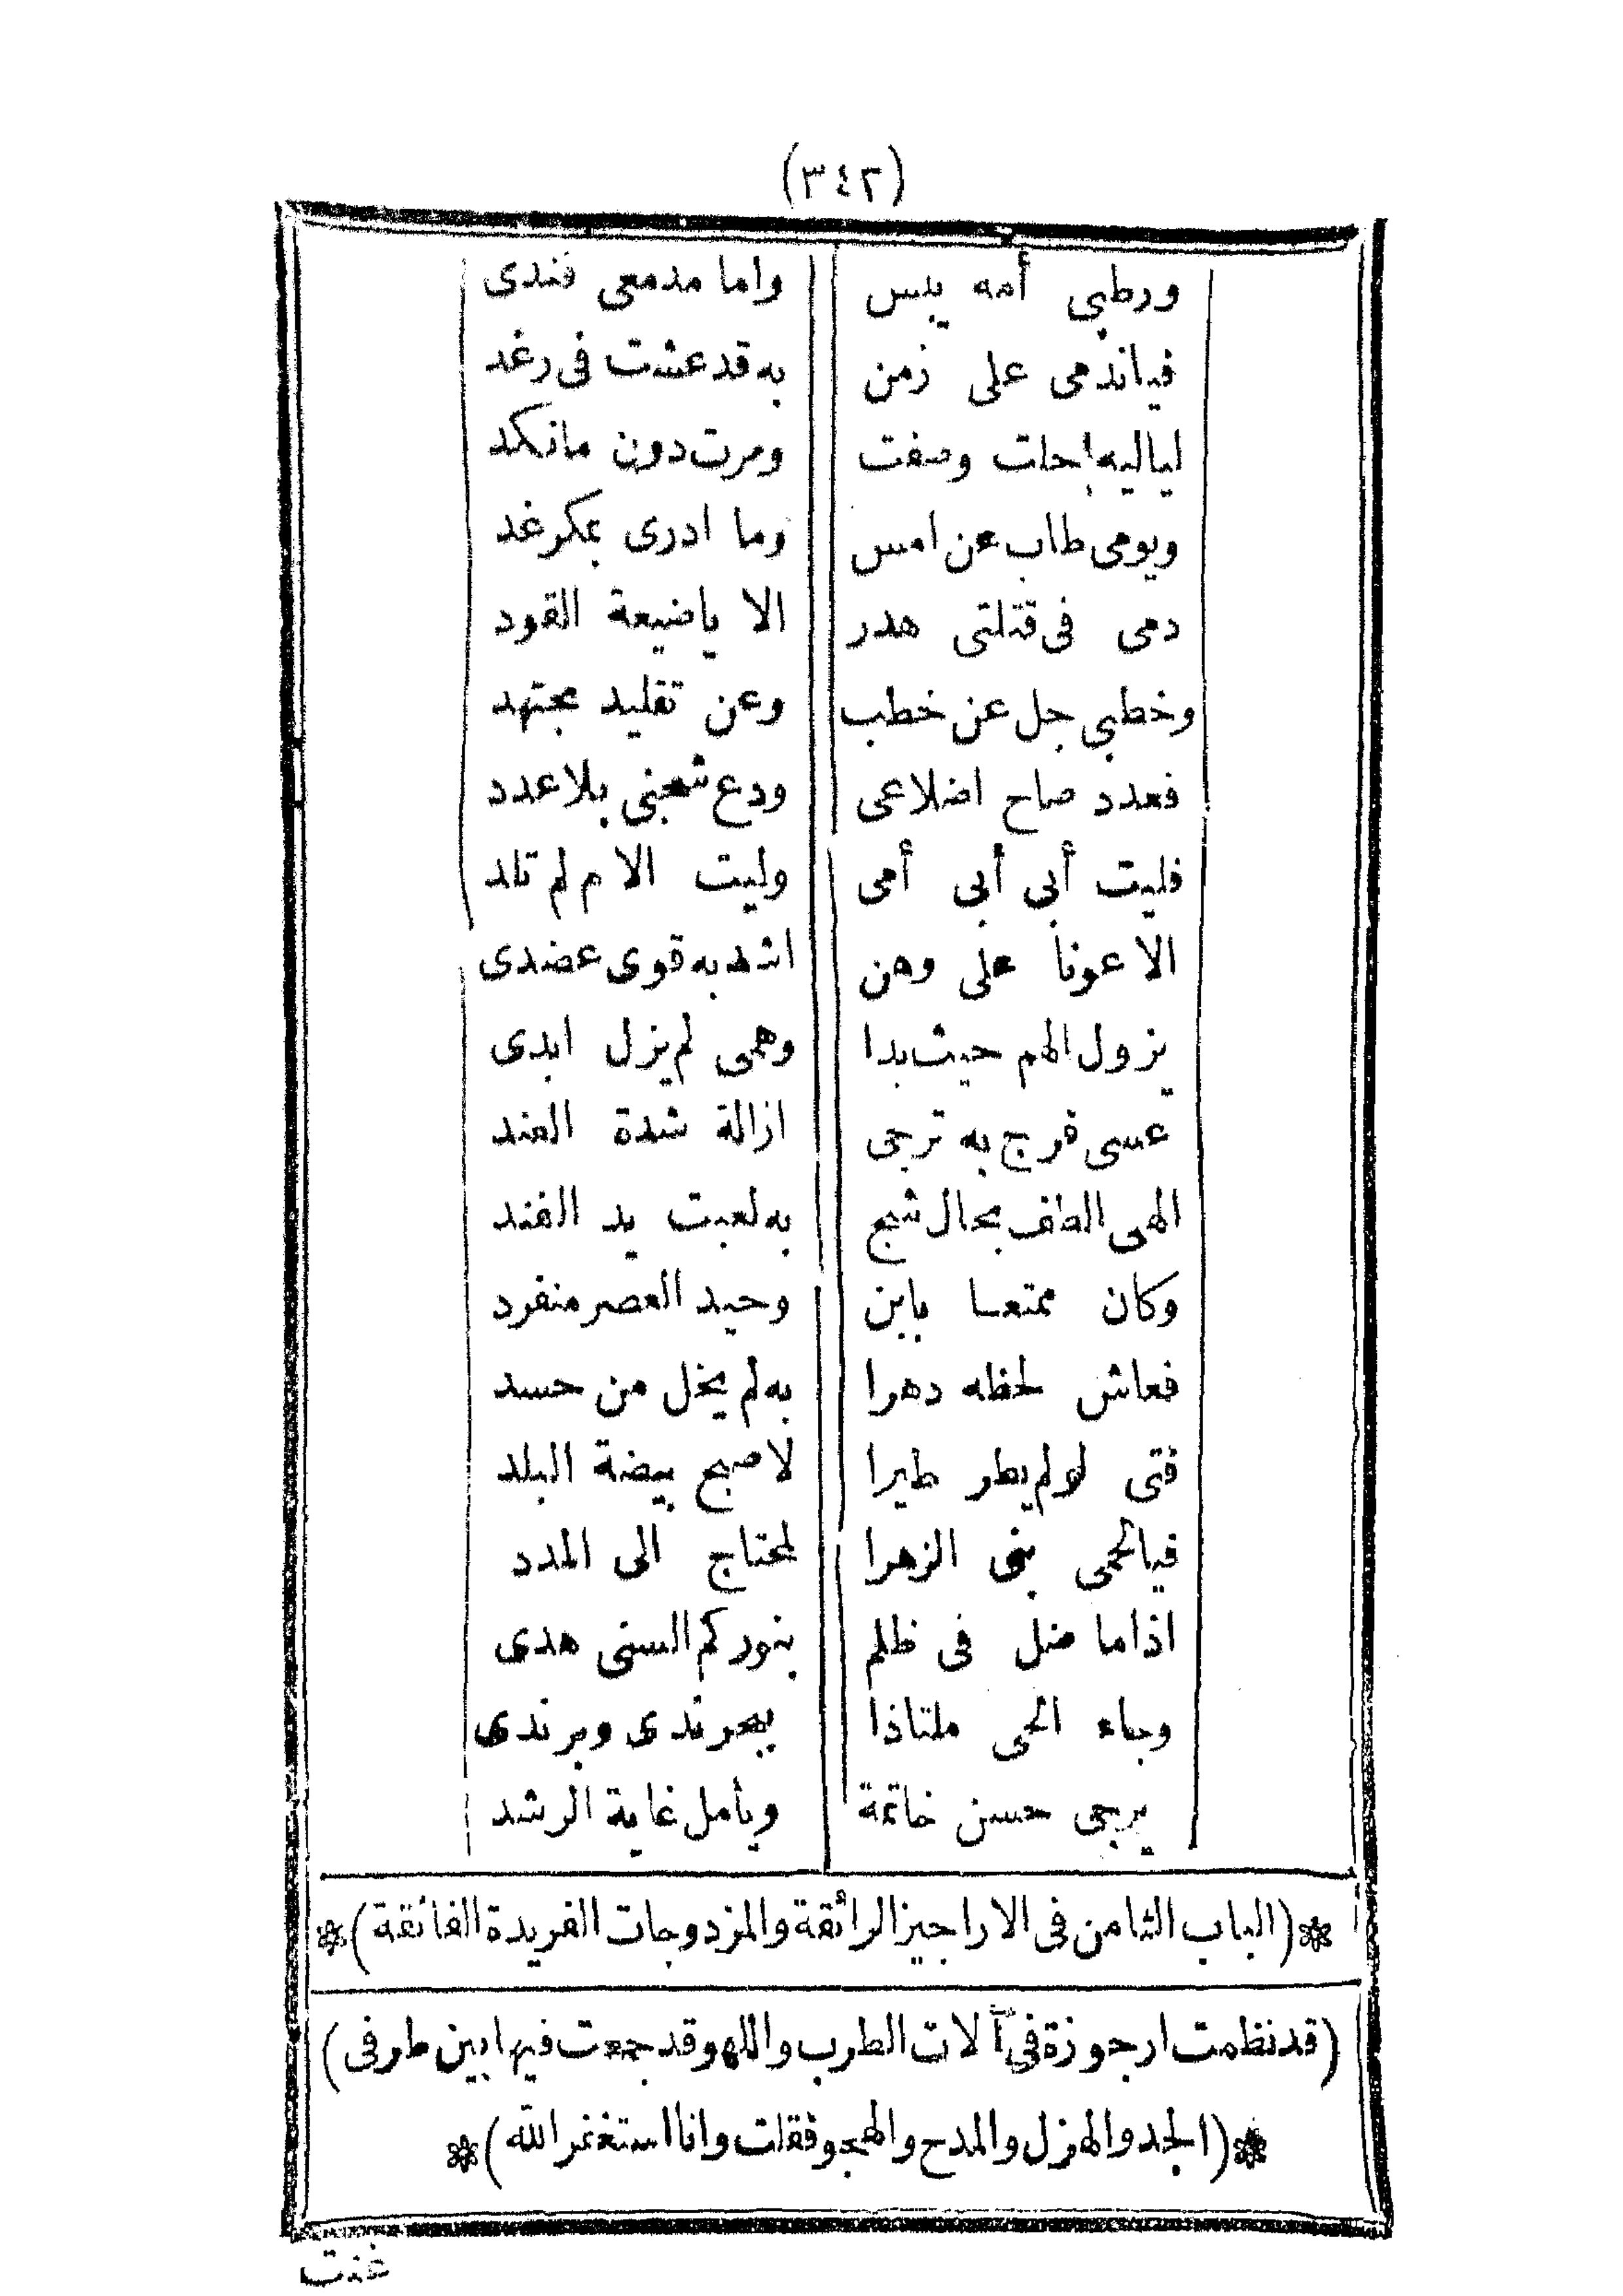 (٣٤٢)
ورطبى أمه يبس واما مدمعى فندى
فياندمى على زمن به قد عشت فى رغد
لياليه احلت وصفت ومرت دون مانكد
ويومى طاب عن امس وما ادرى بمكر غد
دمى فى قتلتى هدر الا ياضيعة القود
وخطبى جل عن خطب وعن تقليد مجتهد
فعدد صاح اضلاعى ودع شجنى بلا عدد
فليت أبى أبى أمى وليت الام لم تلد
الا عونا على وهن اشد به قوى عضدى
يزول الهم حيث بدا وهمى لم يزل ابدى
عسى فرج به ترجى ازالة شدة العند
الهى الطف بحال شج به لعبت يد الفند
وكان ممتعا بابن وحيد العصر منفرد
فعاش لحظه دهرا به لم يخل من حسد
فتى لو لم يطر طيرا لاصبح بيضة البلد
فيالحمى بنى الزهرا لمحتاج الى المدد
اذا ما ضل فى ظلم بنوركم السنى هدى
وجاء الحى ملتاذا ببحر ندى وبر ندى
يرجى حسن خاتمة ويأمل غاية الرشد
(الباب الثامن فى الاراجيز الرائقة والمزدوجات الفريدة الفائقة)
(قد نظمت ارجوزة فى آلات الطرب واللهو وقد جمعت فيها بين طرفى)
(الجد والهزل والمدح والهجو فقلت وانا استغفر الله)
غنت